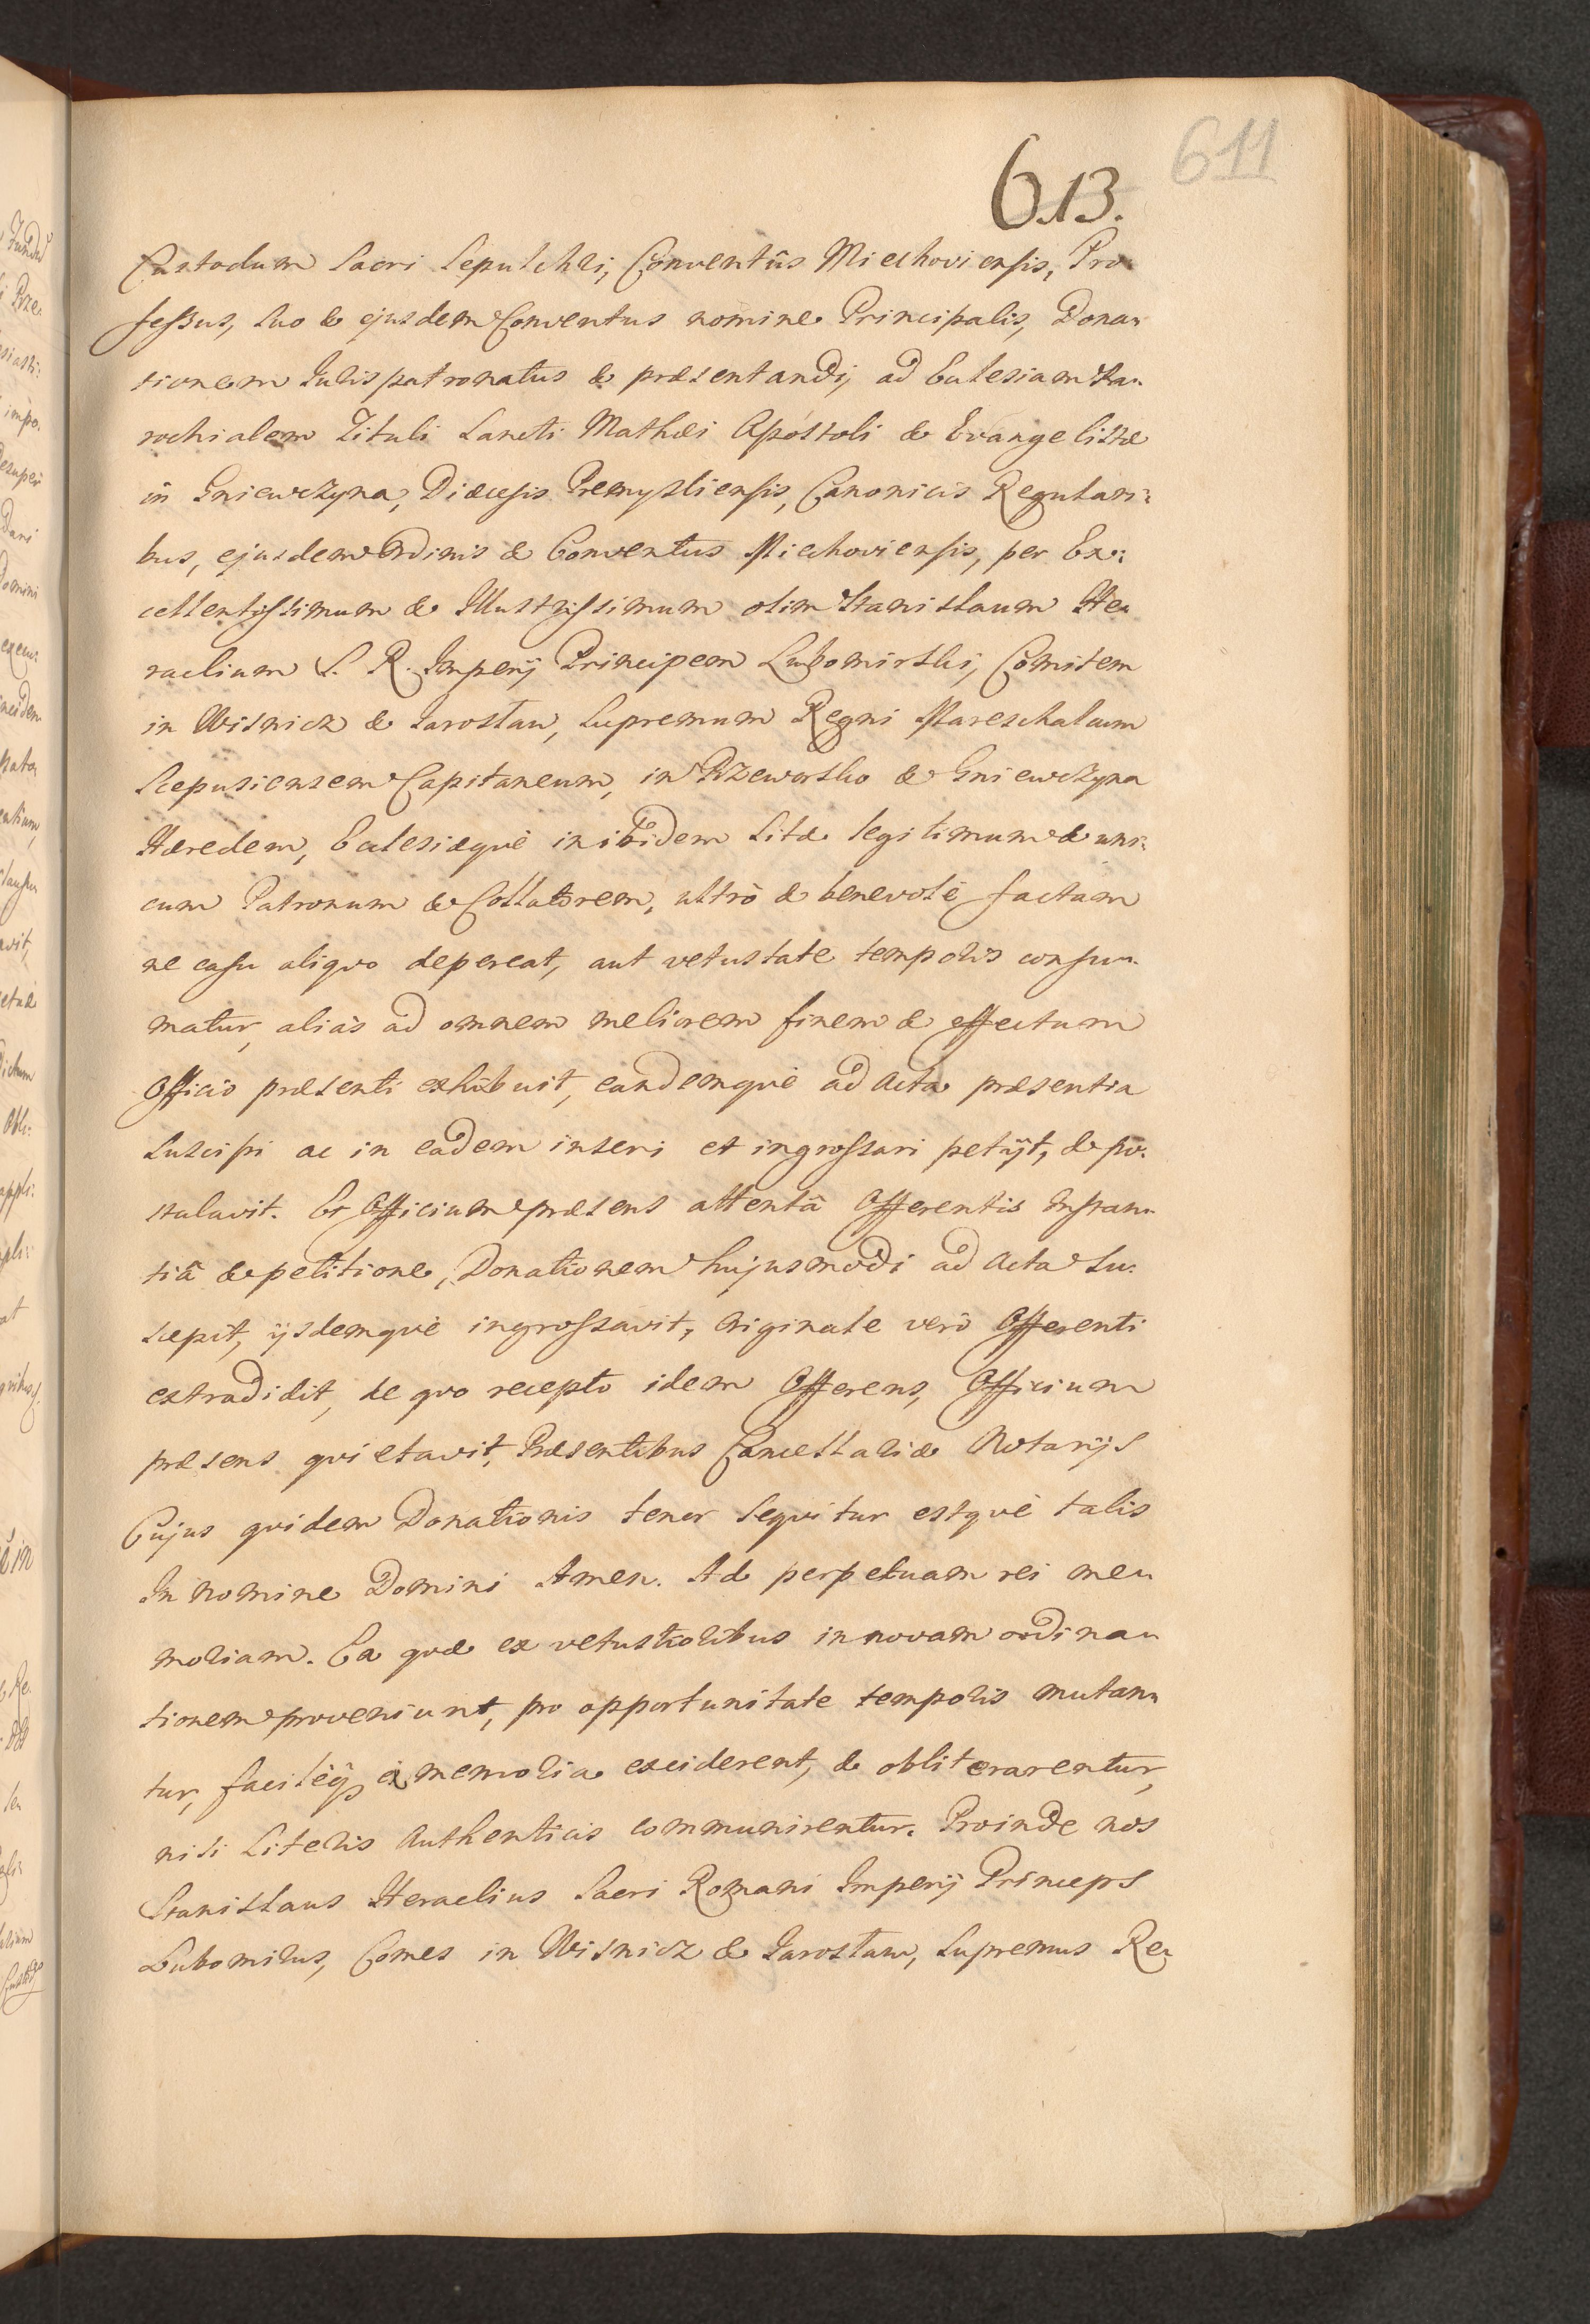 611
613.
Custodum Sacri Sepulchri, Conventûs Miechoviensis, Pro-
fessus, suo & ejusdem Conventus nomine Principalis, Dona-
tionem Juris patronatus & præsentandi, ad Ecclesiam Pa-
rochialem Tituli Sancti Mathæi Apóstoli & Evangelistæ
in Gniewczyna, Diæcesis Premysliensis, Canonicis Regulari-
bus, ejusdem Ordinis & Conventus Miechoviensis, per Ex-
cellentissimum & Illustrissimum olim Stanislaum He-
raclium S. R. Imperij Principem Lubomirski, Comitem
in Wisnicz & Jarosław, Supremum Regni Mareschalcum
Scepusiensem Capitaneum, in Przeworsko & Gniewczyna
Hæredem, Ecclesiæquè inibidem Sitæ legitimum & uni-
cum Patronum & Collatorem, ultrò & benevolè factam
ne casu aliquo depereat, aut vetustate temporis consum-
matur, aliàs ad omnem meliorem finem & effectum
Officio præsenti exhibuit, eandemquè ad Acta præsentia
Suscipi ac in eâdem inseri et ingrossari petijt, & po-
stulavit. Et Officium præsens attentâ Offerentis Instan-
tiâ & petitione, Donationem hujusmodi ad Acta Su-
scepit, ijsdemquè ingrossavit, Originale verò Offerenti
extradidit, de quo recepto idem Offerens, Officium
præsens quietavit, Præsentibus Cancellariæ Notarijs
Cujus quidem Donationis tenor Sequitur estquè talis
In nomine Domini Amen. Ad perpetuam rei me-
moriam. Ea quæ ex vetustioribus in novam ordina-
tionem proveniunt, pro opportunitate temporis mutan-
tur, facilèq3 ex memoria exciderent, & obliterarentur,
nisi Literis Authenticis communirentur. Proinde nos
Stanislaus Heraclius Sacri Romani Imperij Princeps
Lubomirus, Comes in Wisnicz & Jarosław, Supremus Re-